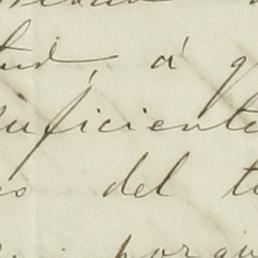 tud, á q
suficiente
os del t
porqu